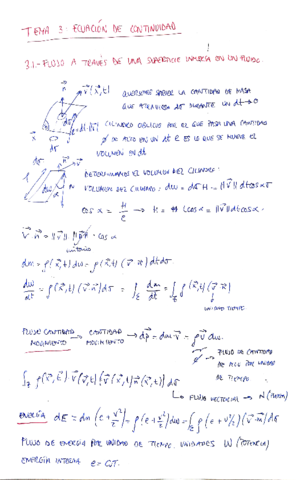 TEMA 3: ECUACIÓN DE CONTINUIDAD
3.1.- FLUJO A TRAVÉS DE UNA SUPERFICIE INMERSA EN UN FLUIDO.
QUEREMOS SABER LA CANTIDAD DE MASA
QUE ATRAVIESA dσ DURANTE UN dt → 0
CILINDRO OBLICUO POR EL QUE PASA UNA CANTIDAD
DE ALGO EN UN dt ES LO QUE SE MUEVE EL
VOLUMEN EN dt
DETERMINAMOS EL VOLUMEN DEL CILINDRO:
VOLUMEN DEL CILINDRO: dω = dσ H = ||v⃗|| dt cos α dσ
cos α = H/L → H = L cos α = ||v⃗|| dt cos α
v⃗ · n⃗ = ||v⃗|| ||n⃗|| · cos α
UNITARIO
dm = ρ(x⃗,t) dω = ρ(x⃗,t) (v⃗·n⃗) dt dσ
= ρ(x⃗,t) (v⃗·n⃗) dσ
UNIDAD TIEMPO
FLUJO CANTIDAD MOVIMIENTO → CANTIDAD MOVIMIENTO → dp⃗ = dm v⃗ = ρ v⃗ dω
FLUJO DE CANTIDAD
DE ALGO POR UNIDAD
DE TIEMPO
∫ ρ(x⃗,t) v⃗(x⃗,t) [v⃗(x⃗,t) n⃗(x⃗,t)] dσ
FLUJO VECTORIAL → N
ENERGÍA dE = dm (e + v²/2) = ρ (e + v²/2) dω = ∫ ρ (e + v²/2) (v⃗·n⃗) dσ
FLUJO DE ENERGÍA POR UNIDAD DE TIEMPO. UNIDADES W (POTENCIA)
ENERGÍA INTERNA e = CvT.